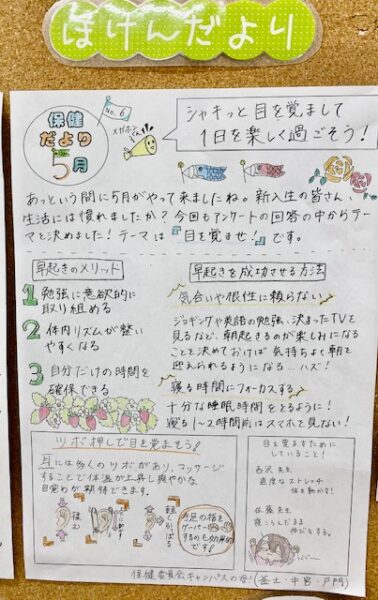 ほけんだより
保健
だより
5月
No.6
メガホン
くん
シャキっと目を覚まして
1日を楽しく過ごそう!
あっという間に5月がやって来ましたね。新入生の皆さん、
生活には慣れましたか?今回もアンケートの回答の中からテー
マを決めました!テーマは『目を覚ませ!』です。
早起きのメリット
1 勉強に意欲的に
取り組める
2 体内リズムが整い
やすくなる
3 自分だけの時間を
確保できる
早起きを成功させる方法
気合いや根性に頼らない
ジョギングや英語の勉強、決まったTVを
見るなど、朝起きるのが楽しみになる
ことを決めておけば気持ちよく朝を
迎えられるようになる…ハズ!
寝る時間にフォーカスする
十分な睡眠時間をとるように!
寝る1~2時間前はスマホを見ない!
ツボ押しで目を覚まそう!
耳には多くのツボがあり、マッサージ
することで体温が上昇し爽やかな
目覚めが期待できます。
揉む
軽く引っぱる
手足の指を
グーパー
するのも効果的
です!
目を覚ますために
していること
西沢先生
適度なストレッチ
体を動かす!
佐藤先生
寝ころんだまま
伸びをする。
保健委員会キャンパスの母(釜土・中宮・戸門)